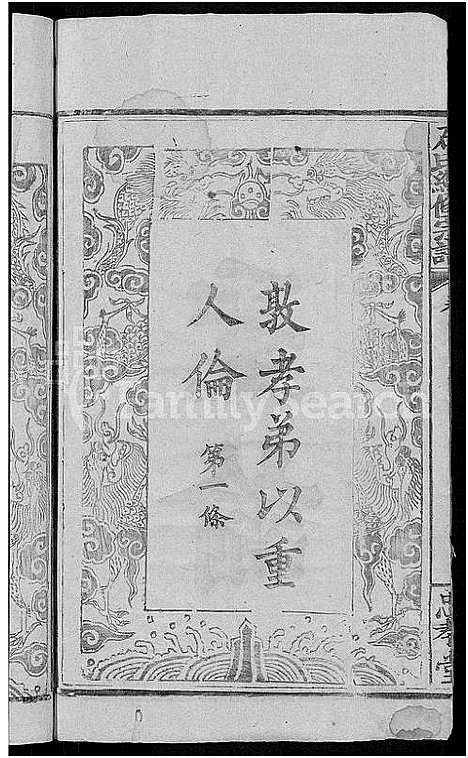 敦孝弟以重
人倫 第一條
忠孝堂
FamilySearch